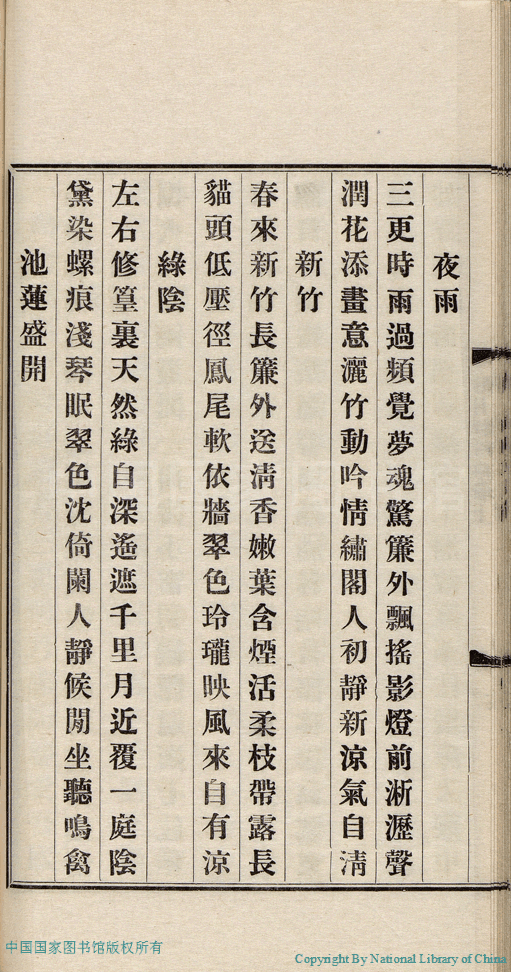 夜雨
三更時雨過頻覺夢魂驚簾外飄搖影燈前淅瀝聲
潤花添畫意灑竹動吟情繡閣人初靜新涼氣自清
新竹
春來新竹長簾外送清香嫩葉含煙活柔枝帶露長
貓頭低壓徑鳳尾軟依牆翠色玲瓏映風來自有涼
綠陰
左右修篁裏天然綠自深遙遮千里月近覆一庭陰
黛染螺痕淺琴眠翠色沈倚闌人靜候閒坐聽鳴禽
池蓮盛開
中国国家图书馆版权所有
Copyright By National Library of China